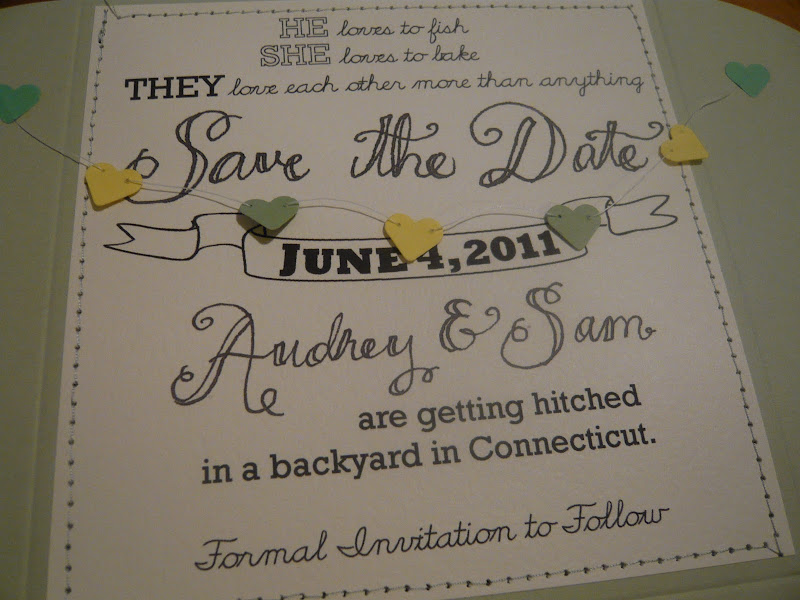 HE loves to fish
SHE loves to bake
THEY love each other more than anything
Save the Date
JUNE 4, 2011
Audrey & Sam
are getting hitched
in a backyard in Connecticut.
Formal Invitation to Follow